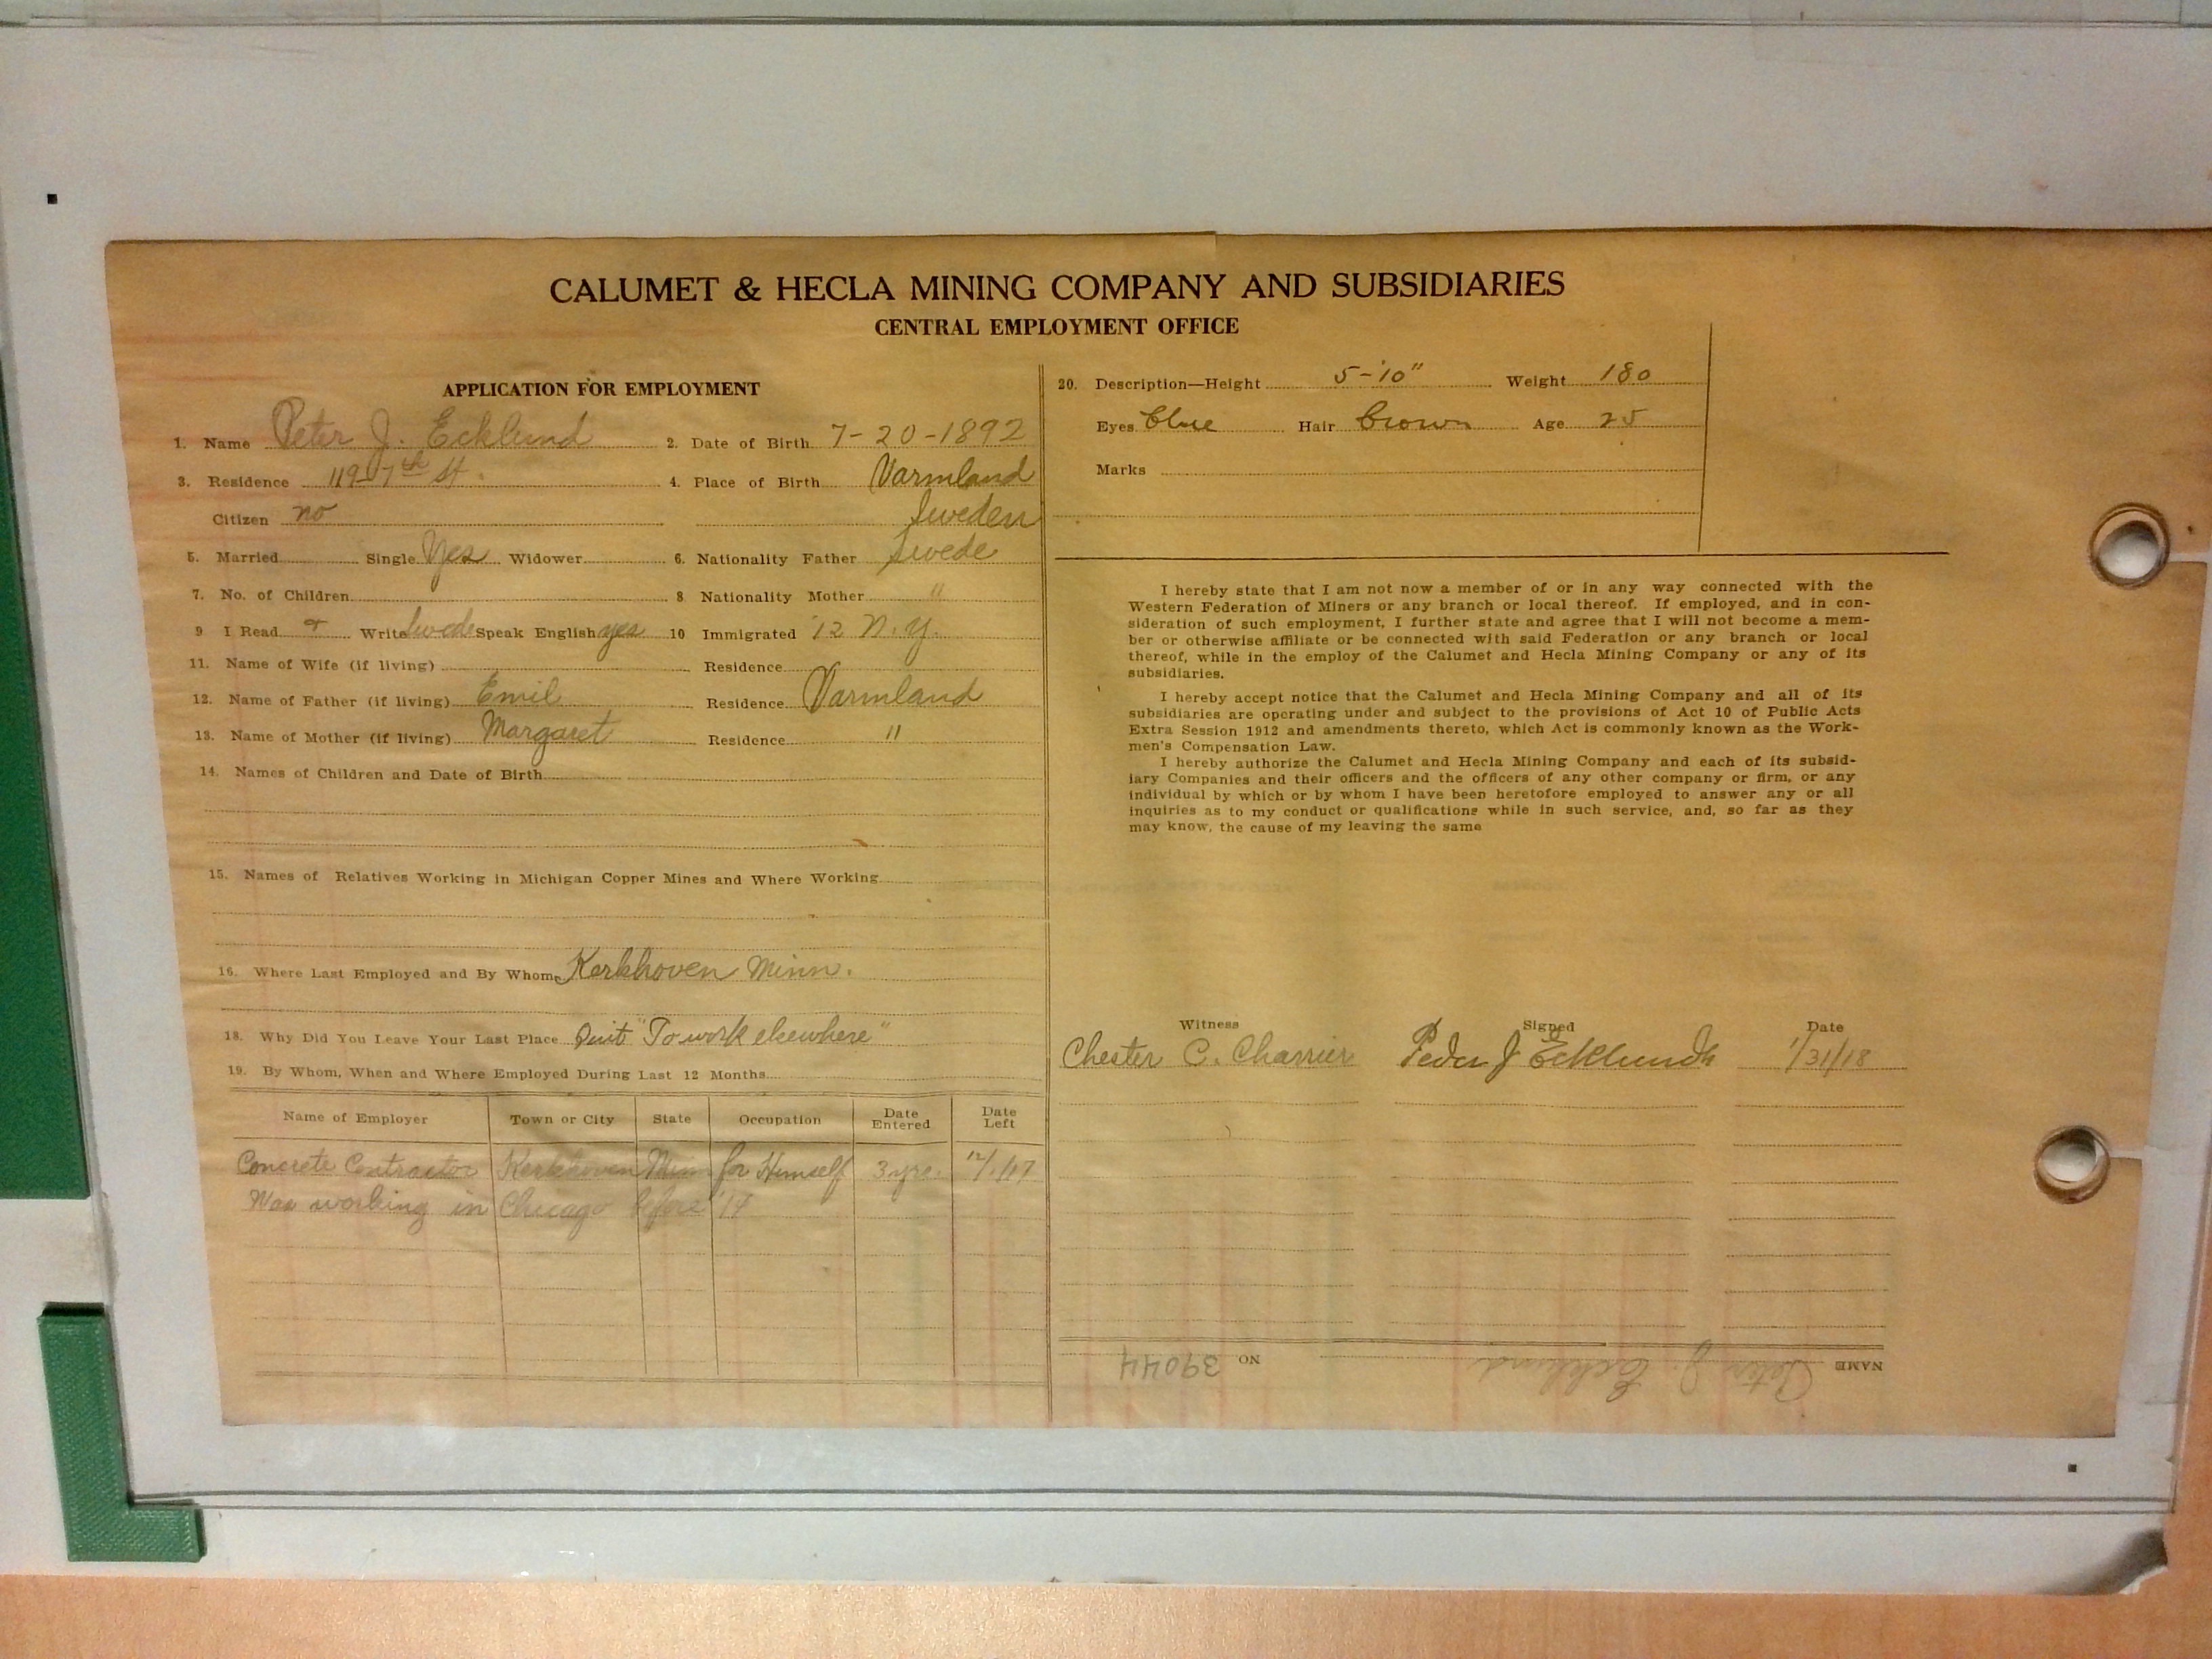 CALUMET & HECLA MINING COMPANY AND SUBSIDIARIES
CENTRAL EMPLOYMENT OFFICE
APPLICATION FOR EMPLOYMENT
1. Name Peter J. Ecklund 2. Date of Birth 7-20-1892
3. Residence 119-7th St. 4. Place of Birth Varmland
Citizen no Sweden
5. Married Single Yes Widower 6. Nationality Father Swede
7. No. of Children 8 Nationality Mother "
9 I Read & Write Swede Speak English yes 10 Immigrated '12 N.Y.
11. Name of Wife (if living) Residence
12. Name of Father (if living) Emil Residence Varmland
13. Name of Mother (if living) Margaret Residence "
14. Names of Children and Date of Birth
15. Names of Relatives Working in Michigan Copper Mines and Where Working
16. Where Last Employed and By Whom Kerkhoven Minn.
18. Why Did You Leave Your Last Place Quit "To work elsewhere"
19. By Whom, When and Where Employed During Last 12 Months
Name of Employer Town or City State Occupation Date Entered Date Left
Concrete Contractor Kerkhoven Minn for Himself 3 yrs. 12/1/17
Was working in Chicago before '14
20. Description—Height 5-10" Weight 180
Eyes blue Hair brown Age 25
Marks
I hereby state that I am not now a member of or in any way connected with the
Western Federation of Miners or any branch or local thereof. If employed, and in con-
sideration of such employment, I further state and agree that I will not become a mem-
ber or otherwise affiliate or be connected with said Federation or any branch or local
thereof, while in the employ of the Calumet and Hecla Mining Company or any of its
subsidiaries.
I hereby accept notice that the Calumet and Hecla Mining Company and all of its
subsidiaries are operating under and subject to the provisions of Act 10 of Public Acts
Extra Session 1912 and amendments thereto, which Act is commonly known as the Work-
men's Compensation Law.
I hereby authorize the Calumet and Hecla Mining Company and each of its subsid-
iary Companies and their officers and the officers of any other company or firm, or any
individual by which or by whom I have been heretofore employed to answer any or all
inquiries as to my conduct or qualifications while in such service, and, so far as they
may know, the cause of my leaving the same
Witness Signed Date
Chester C. Charrier Peder J Ecklundh 1/31/18
NAME Peter J. Ecklund NO 39044